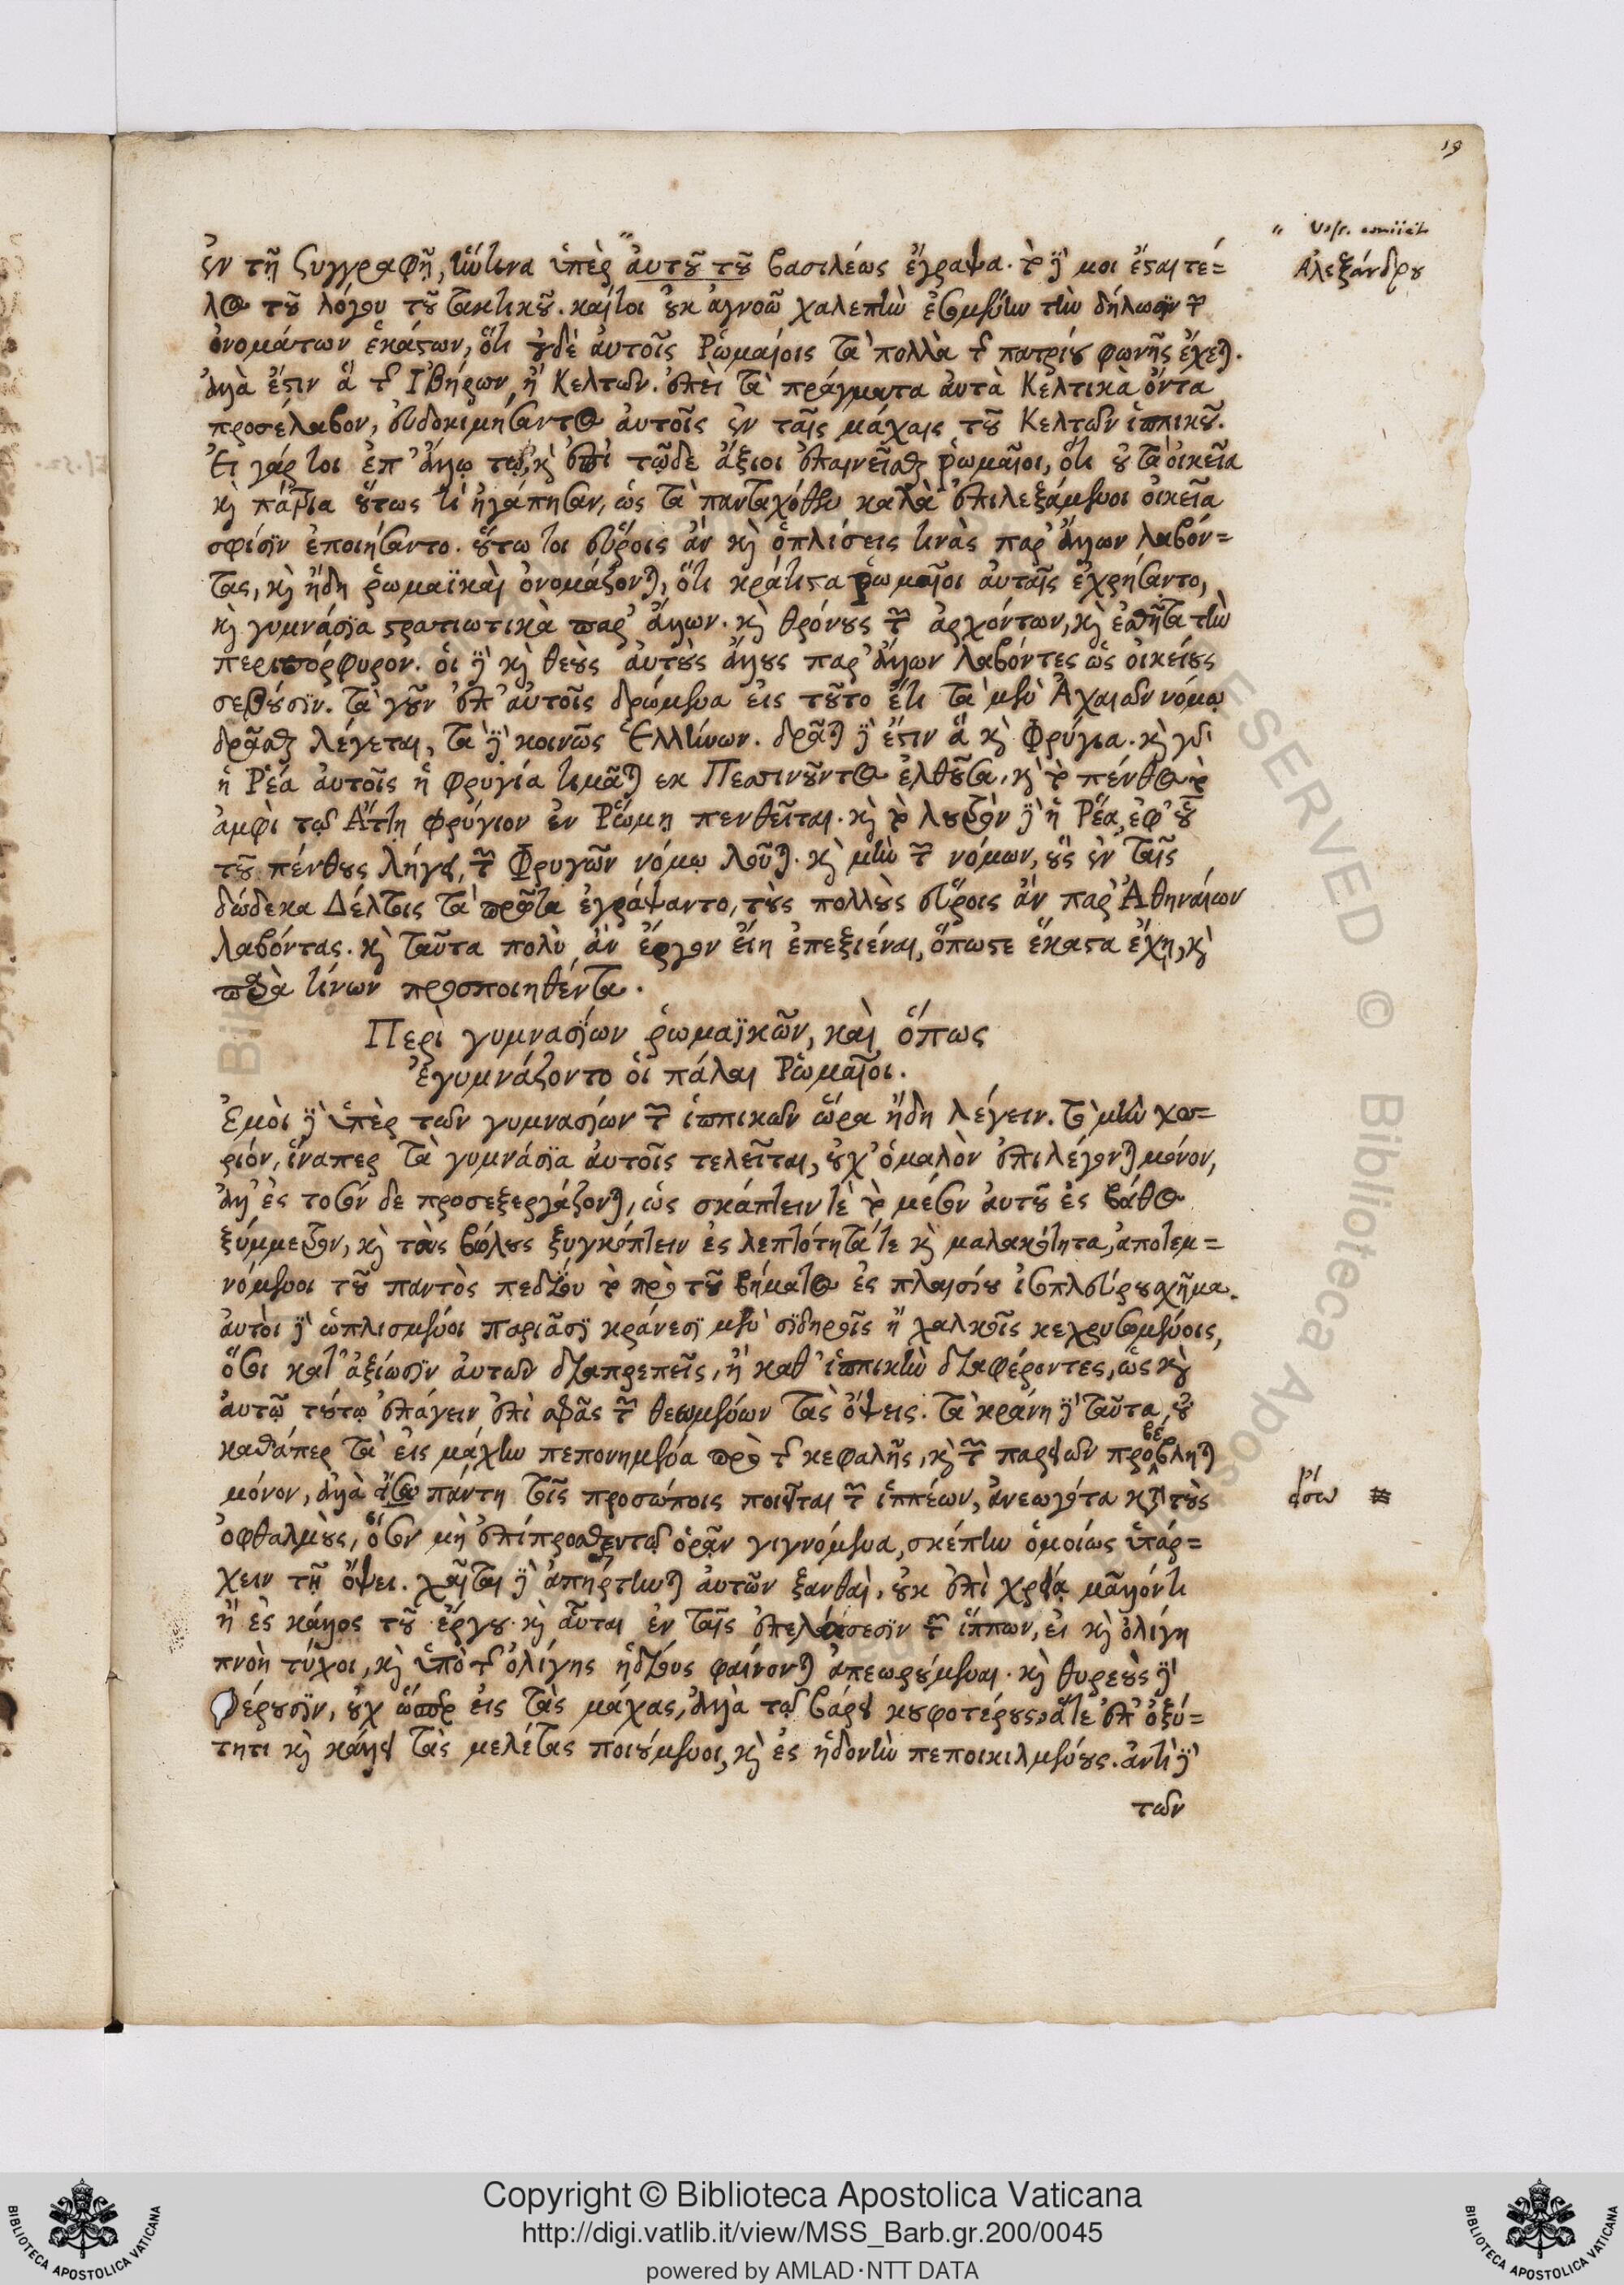 19
ἐν τῇ ξυγγραφῇ, ἥντινα ὑπὲρ αὐτοῦ τοῦ βασιλέως ἔγραψα. τὸ δέ μοι ἔσται τέ=
Ἀλεξάνδρου
λος τοῦ λόγου τοῦ τακτικοῦ. καίτοι οὐκ ἀγνοῶ χαλεπὴν ἐσομένην τὴν δήλωσιν τῶν
ὀνομάτων ἑκάστων, ὅτι οὐδὲ αὐτοῖς Ῥωμαίοις τὰ πολλὰ τῆς πατρίου φωνῆς ἔχεται.
ἀλλὰ ἔστιν ἃ τῆς Ἰβήρων, ἢ Κελτῶν. ἐπεὶ τὰ πράγματα αὐτὰ Κελτικὰ ὄντα
προσέλαβον, εὐδοκιμήσαντος αὐτοῖς ἐν ταῖς μάχαις τοῦ Κελτῶν ἱππικοῦ.
Εἰ γάρ τοι ἐπ' ἄλλῳ τῳ, καὶ ἐπὶ τῷδε ἄξιοι ἐπαινεῖσθαι ῥωμαῖοι, ὅτι οὐ τὰ οἰκεῖα
καὶ πάτρια οὕτως τι ἠγάπησαν, ὡς τὰ πανταχόθεν καλὰ ἐπιλεξάμενοι οἰκεῖα
σφίσιν ἐποιήσαντο. οὕτω τοι εὕροις ἂν καὶ ὁπλίσεις τινὰς παρ' ἄλλων λαβόν=
τας, καὶ ἤδη ῥωμαϊκαὶ ὀνομάζονται, ὅτι κράτιστα ῥωμαῖοι αὐταῖς ἐχρήσαντο,
καὶ γυμνάσια στρατιωτικὰ παρ' ἄλλων. καὶ θρόνους τῶν ἀρχόντων, καὶ ἐσθῆτα τὴν
περιπόρφυρον. οἱ δὲ καὶ θεοὺς αὐτοὺς ἄλλους παρ' ἄλλων λαβόντες ὡς οἰκείους
σέβουσιν. τὰ γοῦν ἐπ' αὐτοῖς δρώμενα εἰς τοῦτο ἔτι τὰ μὲν Ἀχαιῶν νόμῳ
δρᾶσθαι λέγεται, τὰ δὲ κοινῶς Ἑλλήνων. δρᾶται δὲ ἔστιν ἃ καὶ Φρύγια. καὶ γὰρ
ἡ Ῥέα αὐτοῖς ἡ φρυγία τιμᾶται ἐκ Πεσσινοῦντος ἐλθοῦσα, καὶ τὸ πένθος τὸ
ἀμφὶ τῷ Ἄττῃ φρύγιον ἐν Ῥώμῃ πενθεῖται. καὶ τὸ λουτρὸν δὲ ἡ Ῥέα, ἐφ' οὗ
τοῦ πένθους λήγει, τῶν Φρυγῶν νόμῳ λοῦται. καὶ μὴν τῶν νόμων, οὓς ἐν ταῖς
δώδεκα Δέλτοις τὰ πρῶτα ἐγράψαντο, τοὺς πολλοὺς εὕροις ἂν παρ' Ἀθηναίων
λαβόντας. καὶ ταῦτα πολὺ ἂν ἔργον εἴη ἐπεξιέναι, ὅπως τε ἕκαστα ἔχῃ, καὶ
παρὰ τίνων προσποιηθέντα.
Περὶ γυμνασίων ῥωμαϊκῶν, καὶ ὅπως
ἐγυμνάζοντο οἱ πάλαι Ῥωμαῖοι.
Ἐμοὶ δὲ ὑπὲρ τῶν γυμνασίων τῶν ἱππικῶν ὥρα ἤδη λέγειν. τὸ μὲν χω=
ρίον, ἵναπερ τὰ γυμνάσια αὐτοῖς τελεῖται, οὐχ' ὁμαλὸν ἐπιλέγονται μόνον,
ἀλλ' ἐς τοσόν δε προσεξεργάζονται, ὡς σκάπτειν τὲ τὸ μέσον αὐτοῦ ἐς βάθος
ξύμμετρον, καὶ τοὺς βώλους ξυγκόπτειν ἐς λεπτότητά τε καὶ μαλακότητα, ἀποτεμ=
νόμενοι τοῦ παντὸς πεδίου τὸ πρὸ τοῦ βήματος ἐς πλαισίου ἰσοπλεύρου σχῆμα.
αὐτοὶ δὲ ὡπλισμένοι παριᾶσι κράνεσι μὲν σιδηροῖς ἢ χαλκοῖς κεχρυσωμένοις,
ὅσοι κατ' ἀξίωσιν αὐτῶν διαπρεπεῖς, ἢ καθ' ἱππικὴν διαφέροντες, ὡς καὶ
αὐτῷ τούτῳ ἐπάγειν ἐπὶ σφᾶς τῶν θεωμένων τὰς ὄψεις. τὰ κράνη δὲ ταῦτα, οὐ
καθάπερ τὰ εἰς μάχην πεπονημένα πρὸ τῆς κεφαλῆς, καὶ τῶν παρειῶν προβέβληται
μόνον, ἀλλὰ ἴσα πάντη τοῖς προσώποις ποιεῖται τῶν ἱππέων, ἀνεωγότα κατὰ τοὺς
ὀφθαλμοὺς, ὅσον μὴ ἐπίπροσθεν τῷ ὁρᾷν γιγνόμενα, σκέπην ὁμοίως ὑπάρ=
χειν τῇ ὄψει. χαῖται δὲ ἀπήρτηνται αὐτῶν ξανθαὶ, οὐκ ἐπὶ χρείᾳ μᾶλλόν τι
ἢ ἐς κάλλος τοῦ ἔργου. καὶ αὗται ἐν ταῖς ἐπελάσεσιν τῶν ἵππων, εἰ καὶ ὀλίγη
πνοὴ τύχοι, καὶ ὑπὸ τῆς ὀλίγης ἡδέως φαίνονται ἀπεωρούμεναι. καὶ θυρεοὺς δὲ
φέρουσιν, οὐχ ὥσπερ εἰς τὰς μάχας, ἀλλὰ τῷ βάρει κουφοτέρους, ἅτε ἐπ' ὀξύ=
τητι καὶ κάλλει τὰς μελέτας ποιούμενοι, καὶ ἐς ἡδονὴν πεποικιλμένους. ἀντὶ δὲ
τῶν
Copyright © Biblioteca Apostolica Vaticana
http://digi.vatlib.it/view/MSS_Barb.gr.200/0045
powered by AMLAD·NTT DATA
BIBLIOTECA APOSTOLICA VATICANA
BIBLIOTECA APOSTOLICA VATICANA